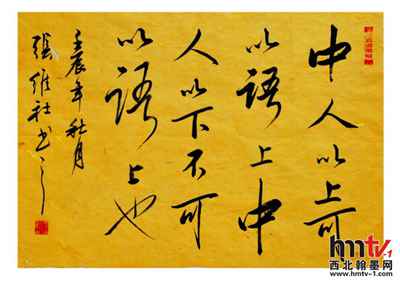 中人以上可
以语上中
人以下不可
以语上也
壬辰年秋月
张维社书之
hmtv-1
西北翰墨网
www.hmtv-1.com